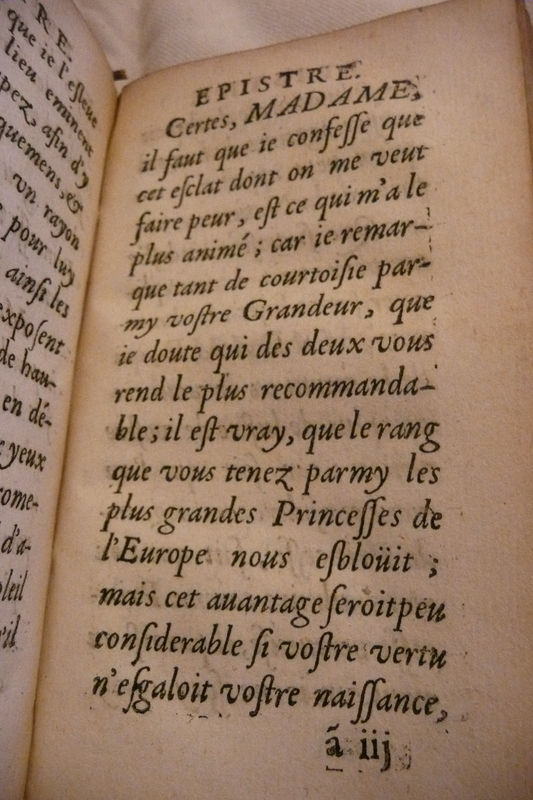 R E.
que ie l'esleue
lieu eminent
pez, afin d'y
quemens, &
vn rayon
pour luy
ainsi les
exposent
de hau-
en dé-
yeux
come-
d'a-
leil
'il
EPISTRE.
Certes, MADAME,
il faut que ie confeſſe que
cet eſclat dont on me veut
faire peur, eſt ce qui m'a le
plus animé ; car ie remar-
que tant de courtoiſie par-
my voſtre Grandeur, que
ie doute qui des deux vous
rend le plus recommanda-
ble ; il eſt vray, que le rang
que vous tenez parmy les
plus grandes Princeſſes de
l'Europe nous eſbloüit ;
mais cet auantage ſeroit peu
conſiderable ſi voſtre vertu
n'eſgaloit voſtre naiſſance,
ã iij